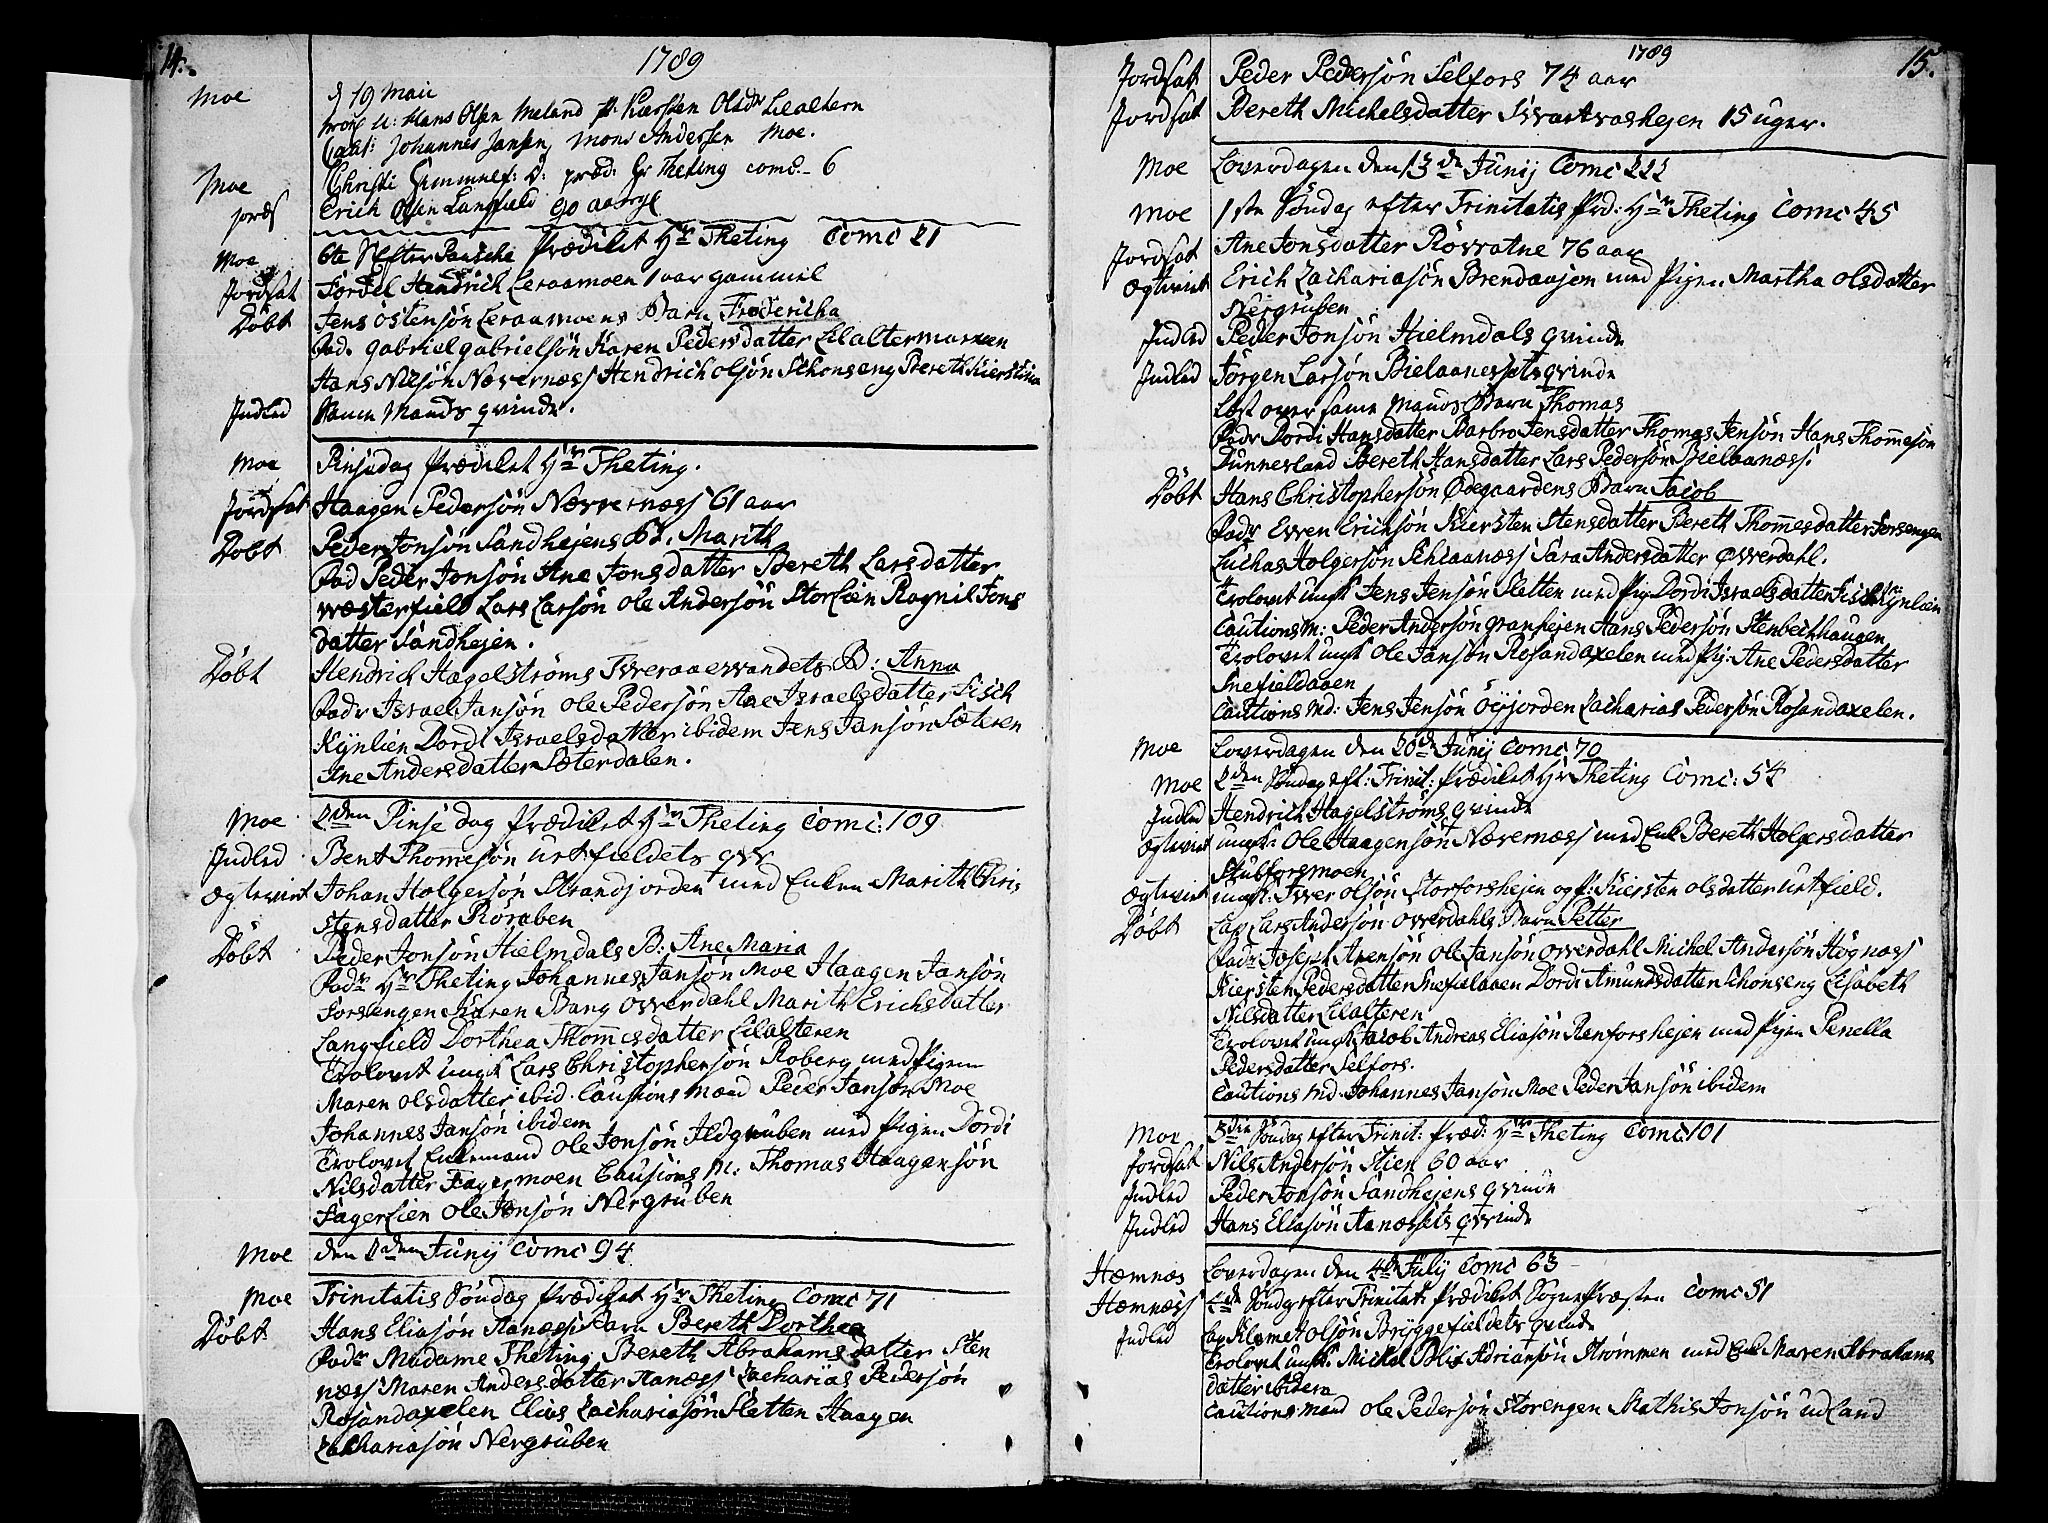 14.
1789
Moe d 19 Maii
trol: u: Hans Olsen Meland p: Kiersten Olsdr Lilaltern
Caut: Johannes Jansen, Mons Andersen Moe.
Moe Christi Himmelf: D: præd: Hr Theting comd. 6
jords Erich Olsen Langfield 90 aar
Moe 6te S Efter Paasche Prædiket Hr Theting Comc 21
Jordsat Fordel Hendrich Leraamoen 1 aar gammel
Döbt Jens Östensön Leraamoens Barn Fredericha
Fad. Gabriel Gabrielsön Karen Pedersdatter Lilaltermarken
Hans Nilsön Næverness Hendrich Olsön Schonseng Bereth Kierstina
Indled Samme Mands qvinde.
Moe Pinsedag Prædiket Hr Theting.
Jordsat Haagen Pedersön Nævverness 61 aar
Döbt Peder Jonsön Sandhejens B. Marith
Fad Peder Jonsön Ane Jonsdatter Bereth Larsdatter
Wæsterfield Lars Larsön Ole Andersön Storlien Ragnil Jons
datter Sandhejen.
Döbt Hendrich Hagelströms Tverraaevandets B: Anna
Fadr Israel Jansön Ole Pedersön Ane Israelsdatter Fisch
Kynlien Dordi Israelsdatter ibidem Jens Jansön Sæteren
Ane Andersdatter Sæterdalen.
Moe 2den Pinse dag Prædiket Hr Theting Comc: 109
Indled Bent Thommesön Urtfieldets qvv
Ægteviet Johan Holgersön Strandjorden med Enken Marith Chri
stensdatter Röraben
Döbt Peder Jonsön Hielmdals B: Ane Maria
Fadr Hr Theting Johannes Jansön Moe Haagen Jansön
Forsengen Karen Bang Overdahl Marith Erichsdatter
Langfield Dorthea Thommesdatter Lilalteren
Trolovet Ungk Lars Christophersön Roberg med Pigen
Maren Olsdatter ibid. Cautions mænd Peder Jansön Moe
Johannes Jansön ibidem
Trolovet Enkemand Ole Jonsön Ildgruben med Pigen Dordi
Nilsdatter Fagermoen Cautions M. Thomas Haagensön
Fagerlien Ole Jonsön Nergruben
Moe den 2den Junij Comc 94
Moe Trinitatis Söndag Prædiket Hr Theting Comc 71
Döbt Hans Eliasön Aanæss Barn Bereth Dorthea
Fadr Madame Theting Bereth Abrahamsdatter Sten
næss Maren Andersdatter Aanæss Zacharias Pedersön
Rosandaxelen Elias Zachariasön Sletten Haagen
Zachariasön Nergruben
1789
15.
Jordsat Peder Pedersön Selfors 74 aar
Jordsat Bereth Michelsdatter Svartvashejen 15 uger.
Moe Loverdagen den 13de Junij Comc 222
Moe 1ste Söndag efter Trinitatis Præd: Hr Theting Comc 45
Jordsat Ane Jonsdatter Rövvatne 76 aar
Ægteviet Erich Zachariasön Brendaasen med Pigen Martha Olsdatter
Nergruben
Indled Peder Jonsön Hielmdals qvinde
Indled Jörgen Larsön Bielaanessets qvinde
Læst over same Mands Barn Thomas
Fadr Dordi Hansdatter Barbro Jensdatter Thomas Jensön Hans Thommesön
Dunnesland Bereth Hansdatter Lars Pedersön Bielaanæss.
Döbt Hans Christophersön Ödegaardens Barn Jacob
Fadr Evven Erichsön Kiersten Stensdatter Bereth Thommesdatter Forsengen
Luchas Holgersön Schlaanæss Sara Andersdatter Overdahl.
Trolovet Ungk Jens Jensön Sletten med Pig Dordi Israelsdatter Fisch Kynlien
Cautions M: Peder Andersön Granhejen Hans Pedersön Stenbechhaugen
Trolovet Ungk Ole Jansön Rosandaxelen med Pij: Ane Pedersdatter
Snefieldaaen
Cautions Md: Jens Jensön Öyjorden Zacharias Pedersön Rosandaxelen.
Moe Loverdagen den 20de Junij Comc 70
Moe 2den Söndag eft: Trinit: Prædiket Hr Theting Comc: 54
Indled Hendrich Hagelströms qvinde
Ægteviet Ungk: Ole Haagensön Næverness med Enk Bereth Holgersdatter
Stubforsmoen
Ægteviet Ungk: Iver Olsön Storforshejen og P: Kiersten Olsdatter Urtfield.
Döbt Lap Lars Andersön Overdahls Barn Petter
Fadr Joseph Arensön Ole Jansön Overdahl Michel Andersön Högnæss
Kiersten Pedersdatter Snefielaaen Dordi Amundsdatter Schonseng Elisabeth
Nilsdatter Lilalteren
Trolovet Ungk Jacob Andreas Eliasön Renforshejen med Pigen Penella
Pedersdatter Selfors.
Cautions Md. Johannes Jansön Moe Peder Jansön ibidem
Moe 3die Söndag efter Trinit: Præd: Hr Theting Comc 101
Jordsat Nils Andersön Stien 60 aar
Indled Peder Jonsön Sandhejens qvinde
Indled Hans Eliasön Aanæssets qvinde
Hæmnæs Loverdagen den 4de July Comc 63
Hæmnæss 4de Söndg efter Trinitat: Prædiket Sogne Præsten Comc 51
Indled Lap Klemet Olsön Bryggefieldets qvinde
Trolovet Ungk. Michel Adriansön Strömmen med Enk Maren Abrahams
datter ibidem
Cautions mænd Ole Pedersön Storengen Mathis Jonsön Udland